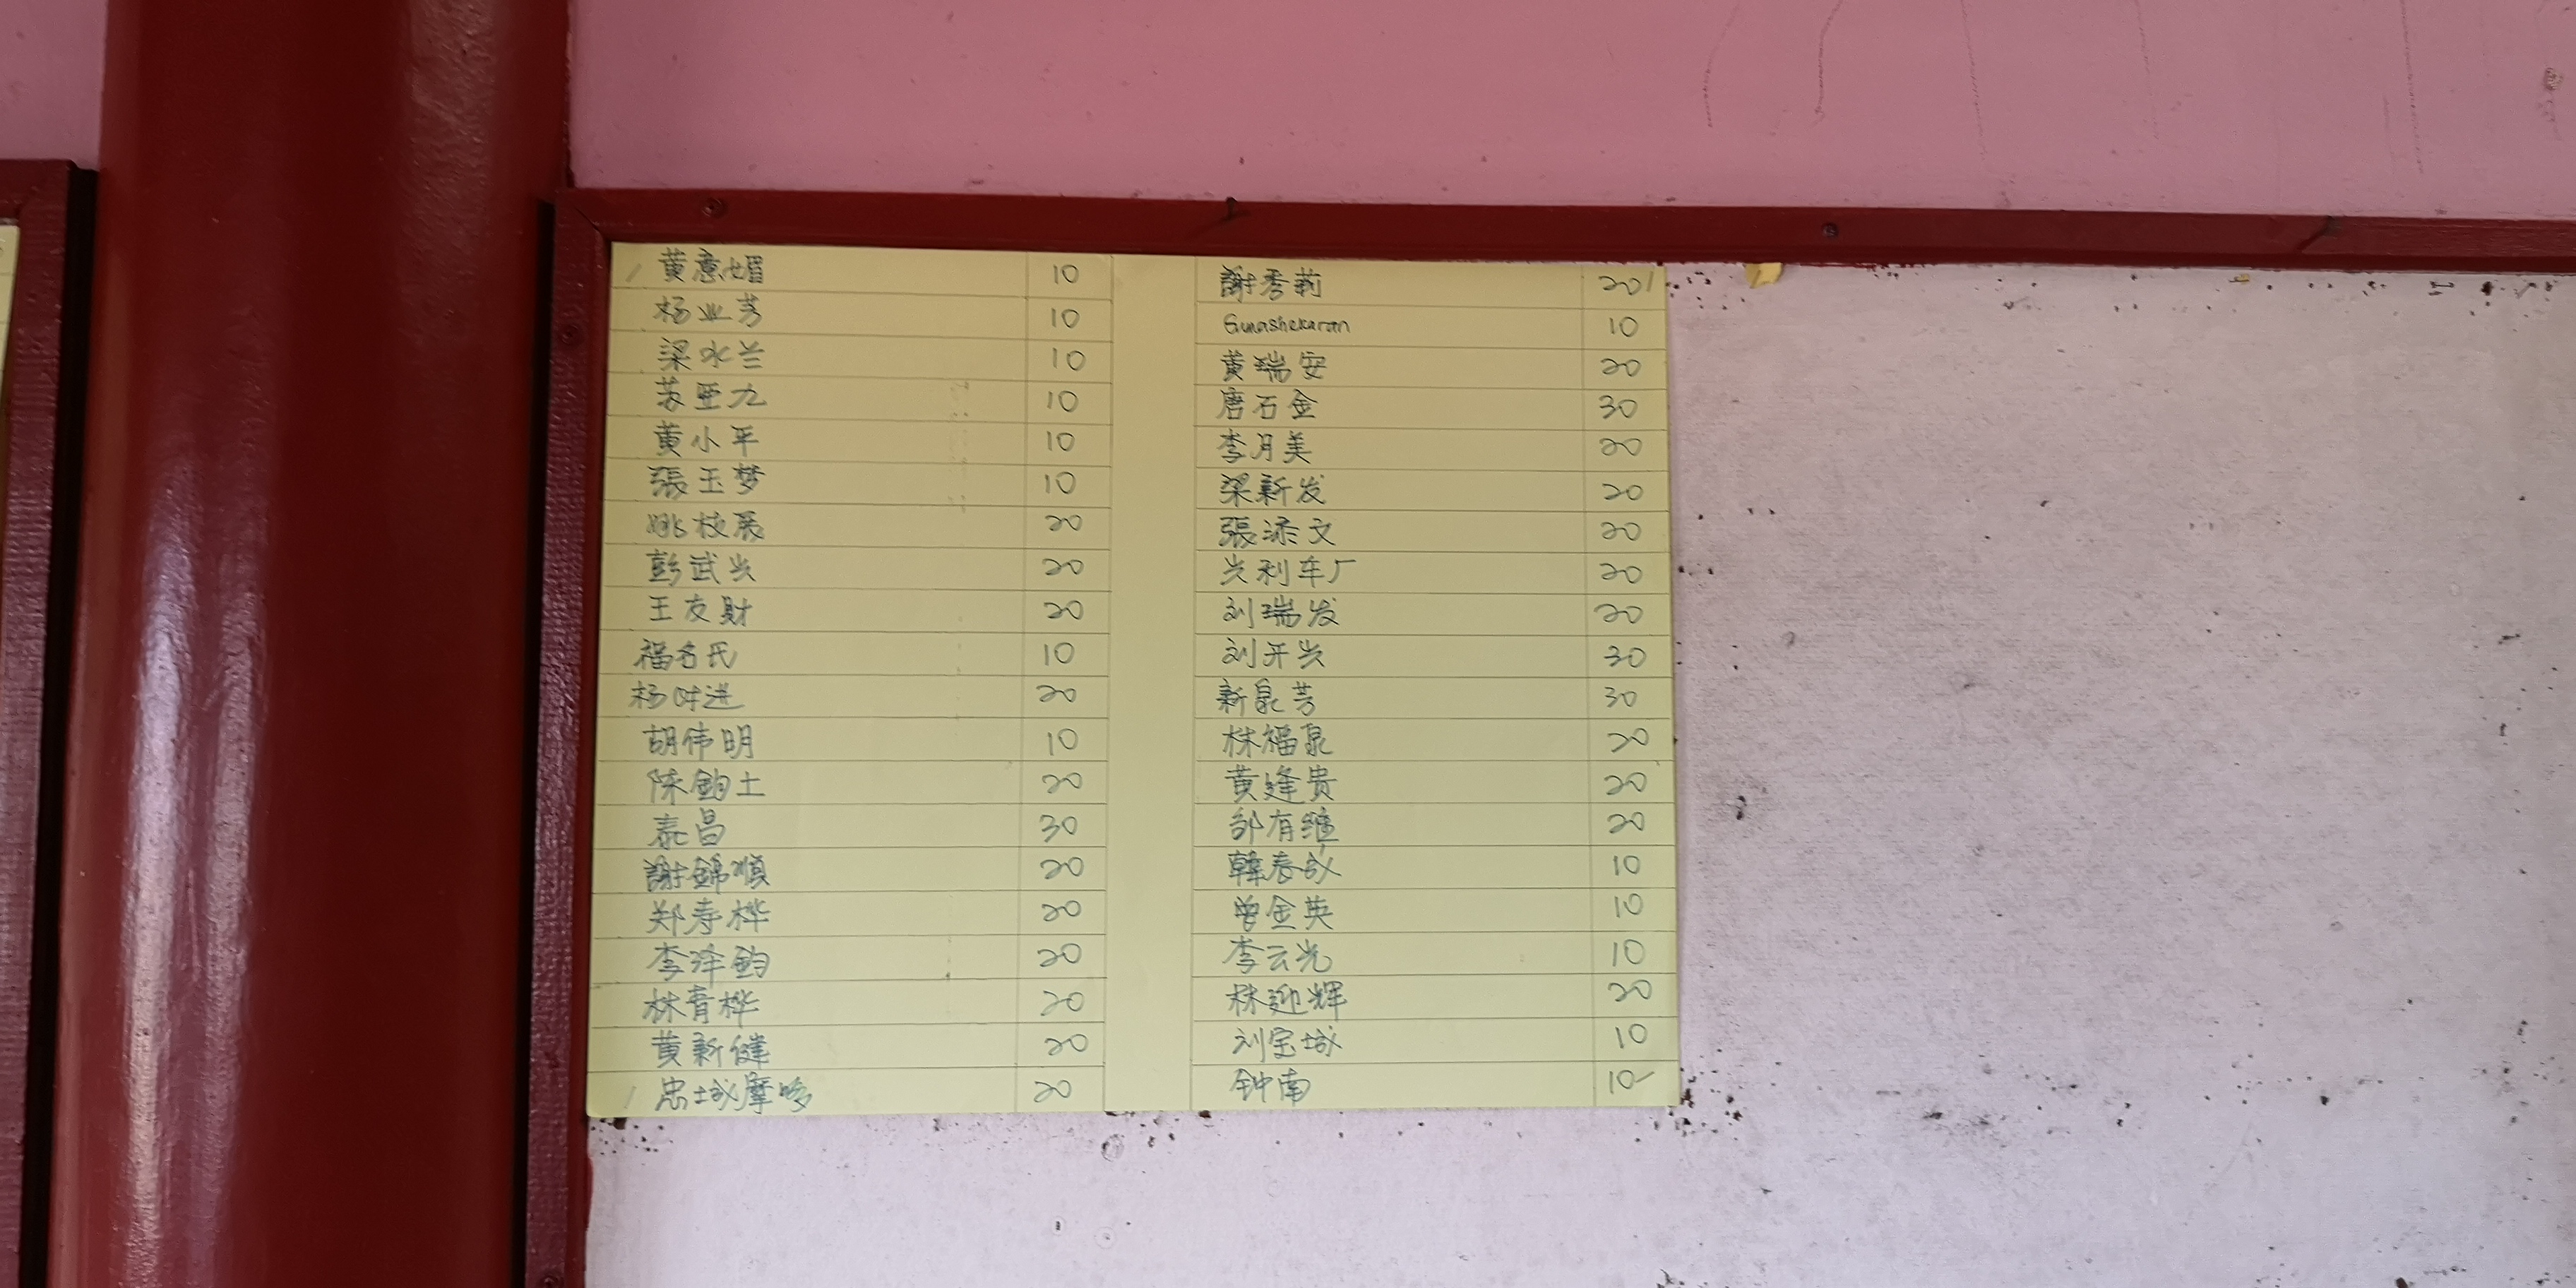 黄意媚 10
杨业芳 10
梁水兰 10
苏亚九 10
黄小平 10
張玉梦 10
姚枝展 20
彭武兴 20
王友财 20
福名氏 10
杨时进 20
胡伟明 10
陈鈞土 20
泰昌 30
謝錦順 20
郑寿桦 20
李泽鈞 20
林青桦 20
黄新健 20
忠城摩哆 20
謝秀莉 20
Gunashekaran 10
黄瑞安 20
唐石金 30
李月美 20
梁新发 20
張添文 20
兴利车厂 20
刘瑞发 20
刘开兴 30
新泉芳 30
林福泉 20
黄逢贵 20
邹有继 20
韓春成 10
曾金英 10
李云光 10
林迎辉 20
刘宝城 10
钟南 10